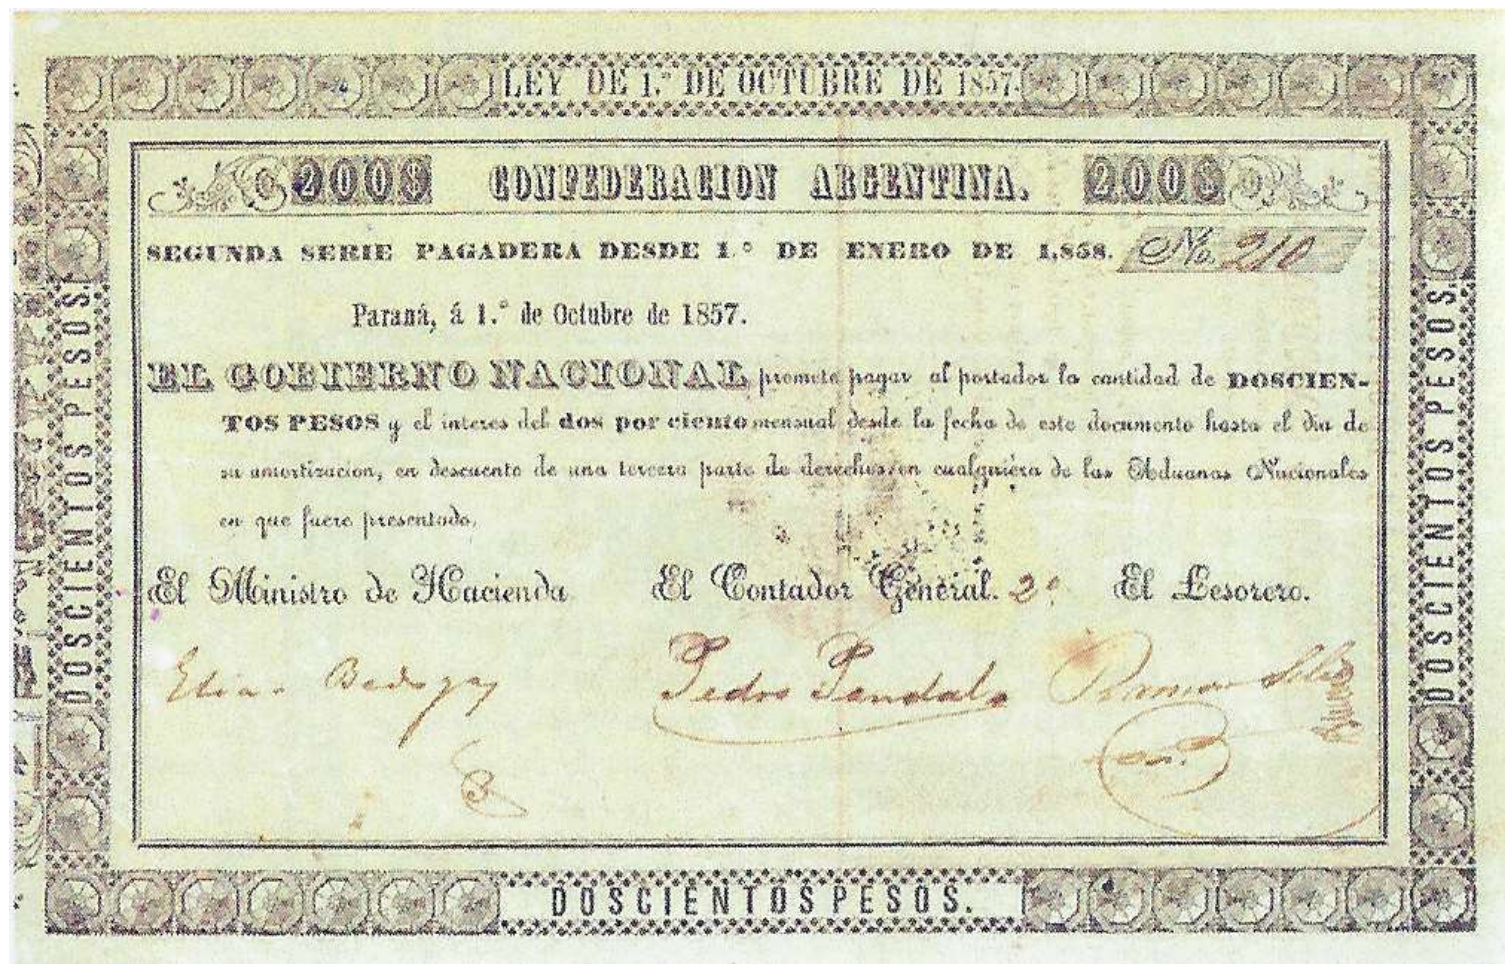 LEY DE 1.º DE OCTUBRE DE 1857.
200$ CONFEDERACION ARGENTINA. 200$
SEGUNDA SERIE PAGADERA DESDE 1.º DE ENERO DE 1,858. No. 210
Paraná, á 1.º de Octubre de 1857.
EL GOBIERNO NACIONAL promete pagar al portador la cantidad de DOSCIEN-
TOS PESOS y el interes del dos por ciento mensual desde la fecha de este documento hasta el dia de
su amortizacion, en descuento de una tercera parte de derechos en cualquiera de las Aduanas Nacionales
en que fuere presentado.
El Ministro de Hacienda El Contador General. 2º El Tesorero.
Elias Bedoya Pedro Pondal Ramon
DOSCIENTOS PESOS.
DOSCIENTOS PESOS.
DOSCIENTOS PESOS.